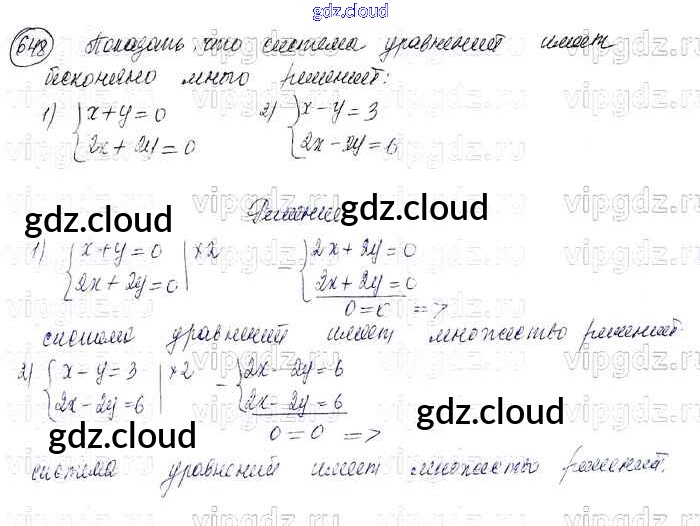 gdz.cloud
648 Показать, что система уравнений имеет
бесконечно много решений:
1) { x+y=0 2) { x-y=3
2x+2y=0 2x-2y=6
Решение
gdz.cloud gdz.cloud
1) { x+y=0 | ×2 - { 2x+2y=0
2x+2y=0 2x+2y=0
0=0 =>
система уравнений имеет множество решений.
2) { x-y=3 | ×2 - { 2x-2y=6
2x-2y=6 2x-2y=6
gdz.cloud gdz.cloud
0=0 =>
система уравнений имеет множество решений.
vipgdz.ru